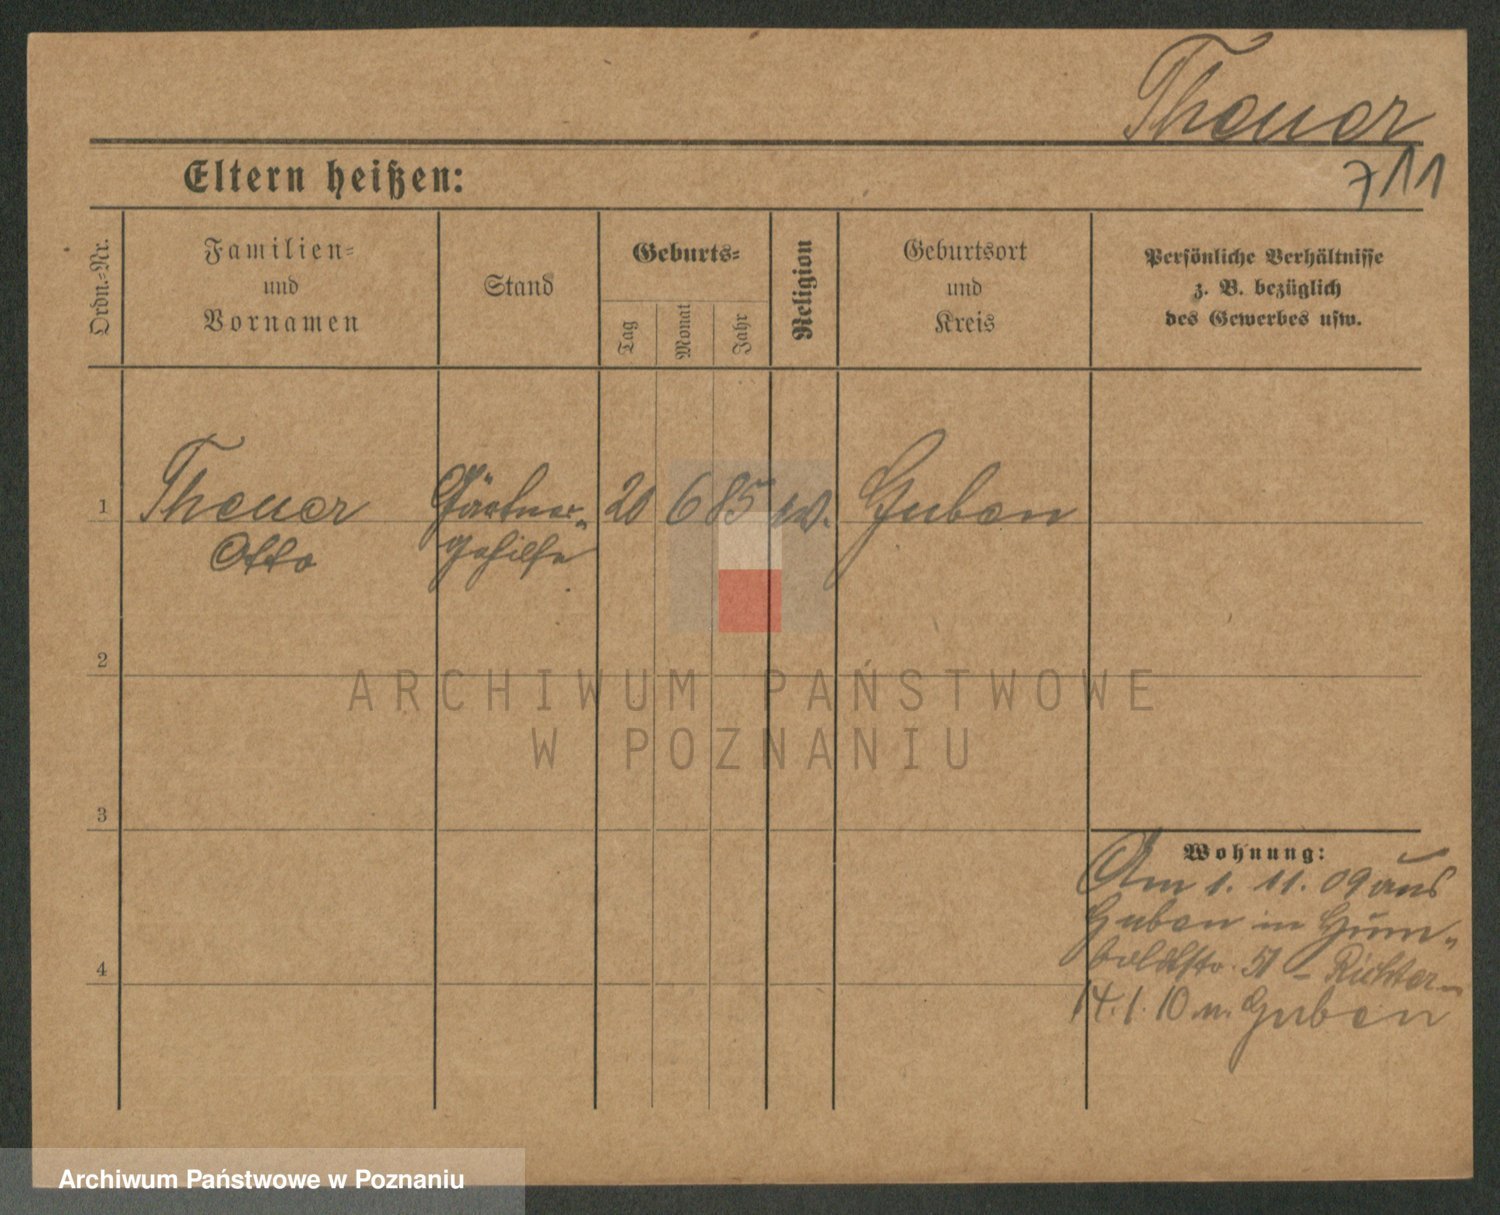 Theuer
711
Eltern heißen:
Ordn.-Nr.
Familien-
und
Vornamen
Stand
Geburts-
Tag
Monat
Jahr
Religion
Geburtsort
und
Kreis
Persönliche Verhältnisse
z. B. bezüglich
des Gewerbes usw.
1
Theuer
Otto
Gärtner-
gehilfe
20
6
85
ev.
Guben
2
ARCHIWUM PAŃSTWOWE
W POZNANIU
3
Wohnung:
Am 1. 11. 09 aus
Guben in Hum-
boldtstr. 51 - Richter -
14. 1. 10 n. Guben
4
Archiwum Państwowe w Poznaniu